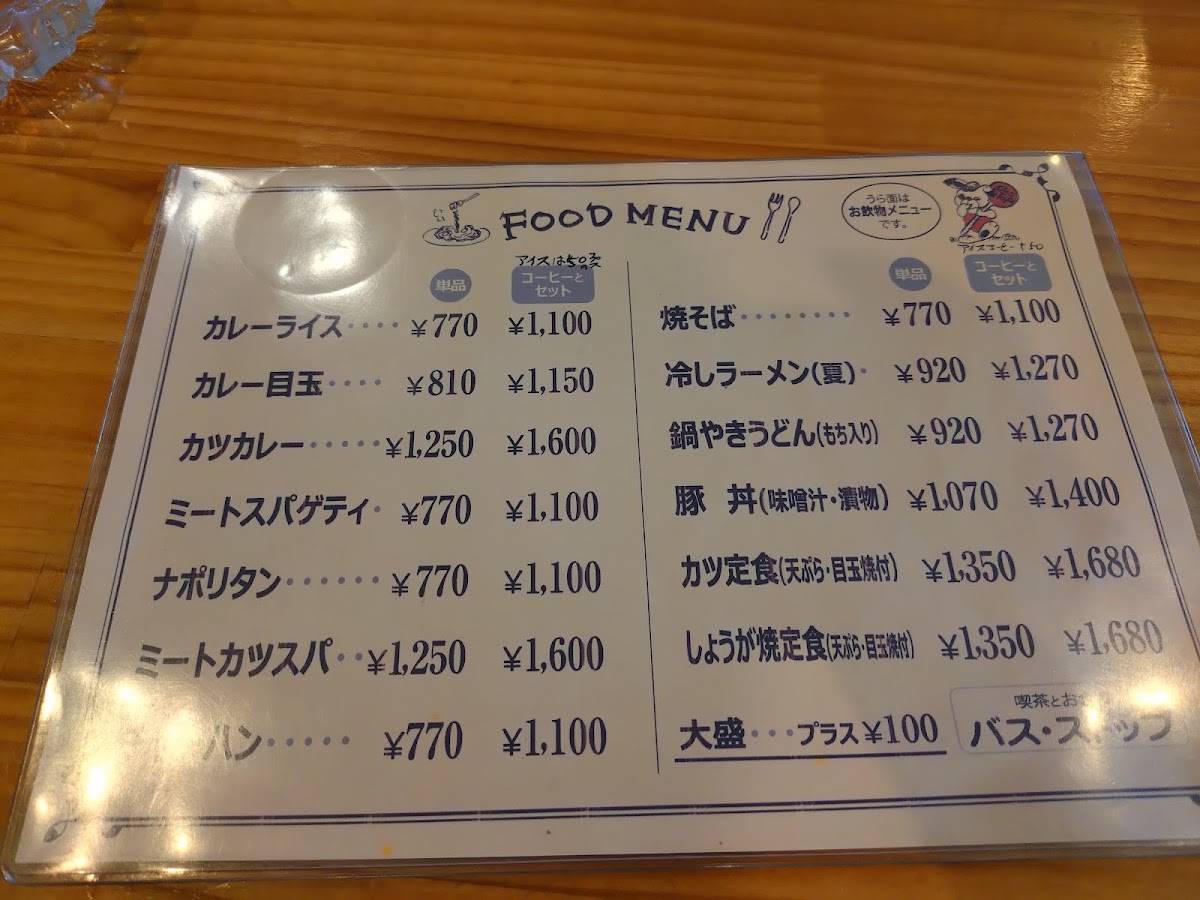 FOOD MENU
うら面は
お飲物メニュー
です。
アイスは50円
単品
コーヒーと
セット
カレーライス‥‥ ¥770 ¥1,100
カレー目玉‥‥ ¥810 ¥1,150
カツカレー‥‥‥ ¥1,250 ¥1,600
ミートスパゲティ・ ¥770 ¥1,100
ナポリタン‥‥‥ ¥770 ¥1,100
ミートカツスパ‥ ¥1,250 ¥1,600
ハン‥‥‥ ¥770 ¥1,100
アイスコーヒー+50
単品
コーヒーと
セット
焼そば‥‥‥‥‥ ¥770 ¥1,100
冷しラーメン(夏)・ ¥920 ¥1,270
鍋やきうどん(もち入り) ¥920 ¥1,270
豚 丼(味噌汁・漬物) ¥1,070 ¥1,400
カツ定食(天ぷら・目玉焼付) ¥1,350 ¥1,680
しょうが焼定食(天ぷら・目玉焼付) ¥1,350 ¥1,680
大盛‥‥プラス¥100
喫茶とお
バス・ストップ